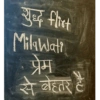 शुद्ध flirt
Milawati
प्रेम
से बेहतर है